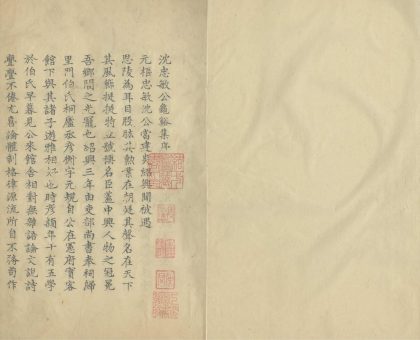 沈忠敏公龜谿集序
元樞忠敏沈公當建炎紹興間被遇
思陵為耳目股肱其勲業在朝廷其聲名在天下
其風鯁挺挺特立號稱名臣蓋中興人物之冠冕
吾鄉閭之光寵也紹興三年由吏部尚書奉祠歸
里門伯氏桐廬丞彥衡字元規自公在憲府賓客
館下與其諸子遊雅相好也時彥穎年十有五學
於伯氏早暮見公來館舍相對無雜語論文說詩
亹亹不倦尤喜論體制格律源流所自不務苟作